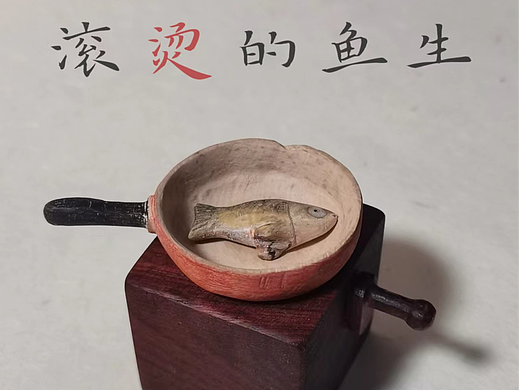 滚烫的鱼生